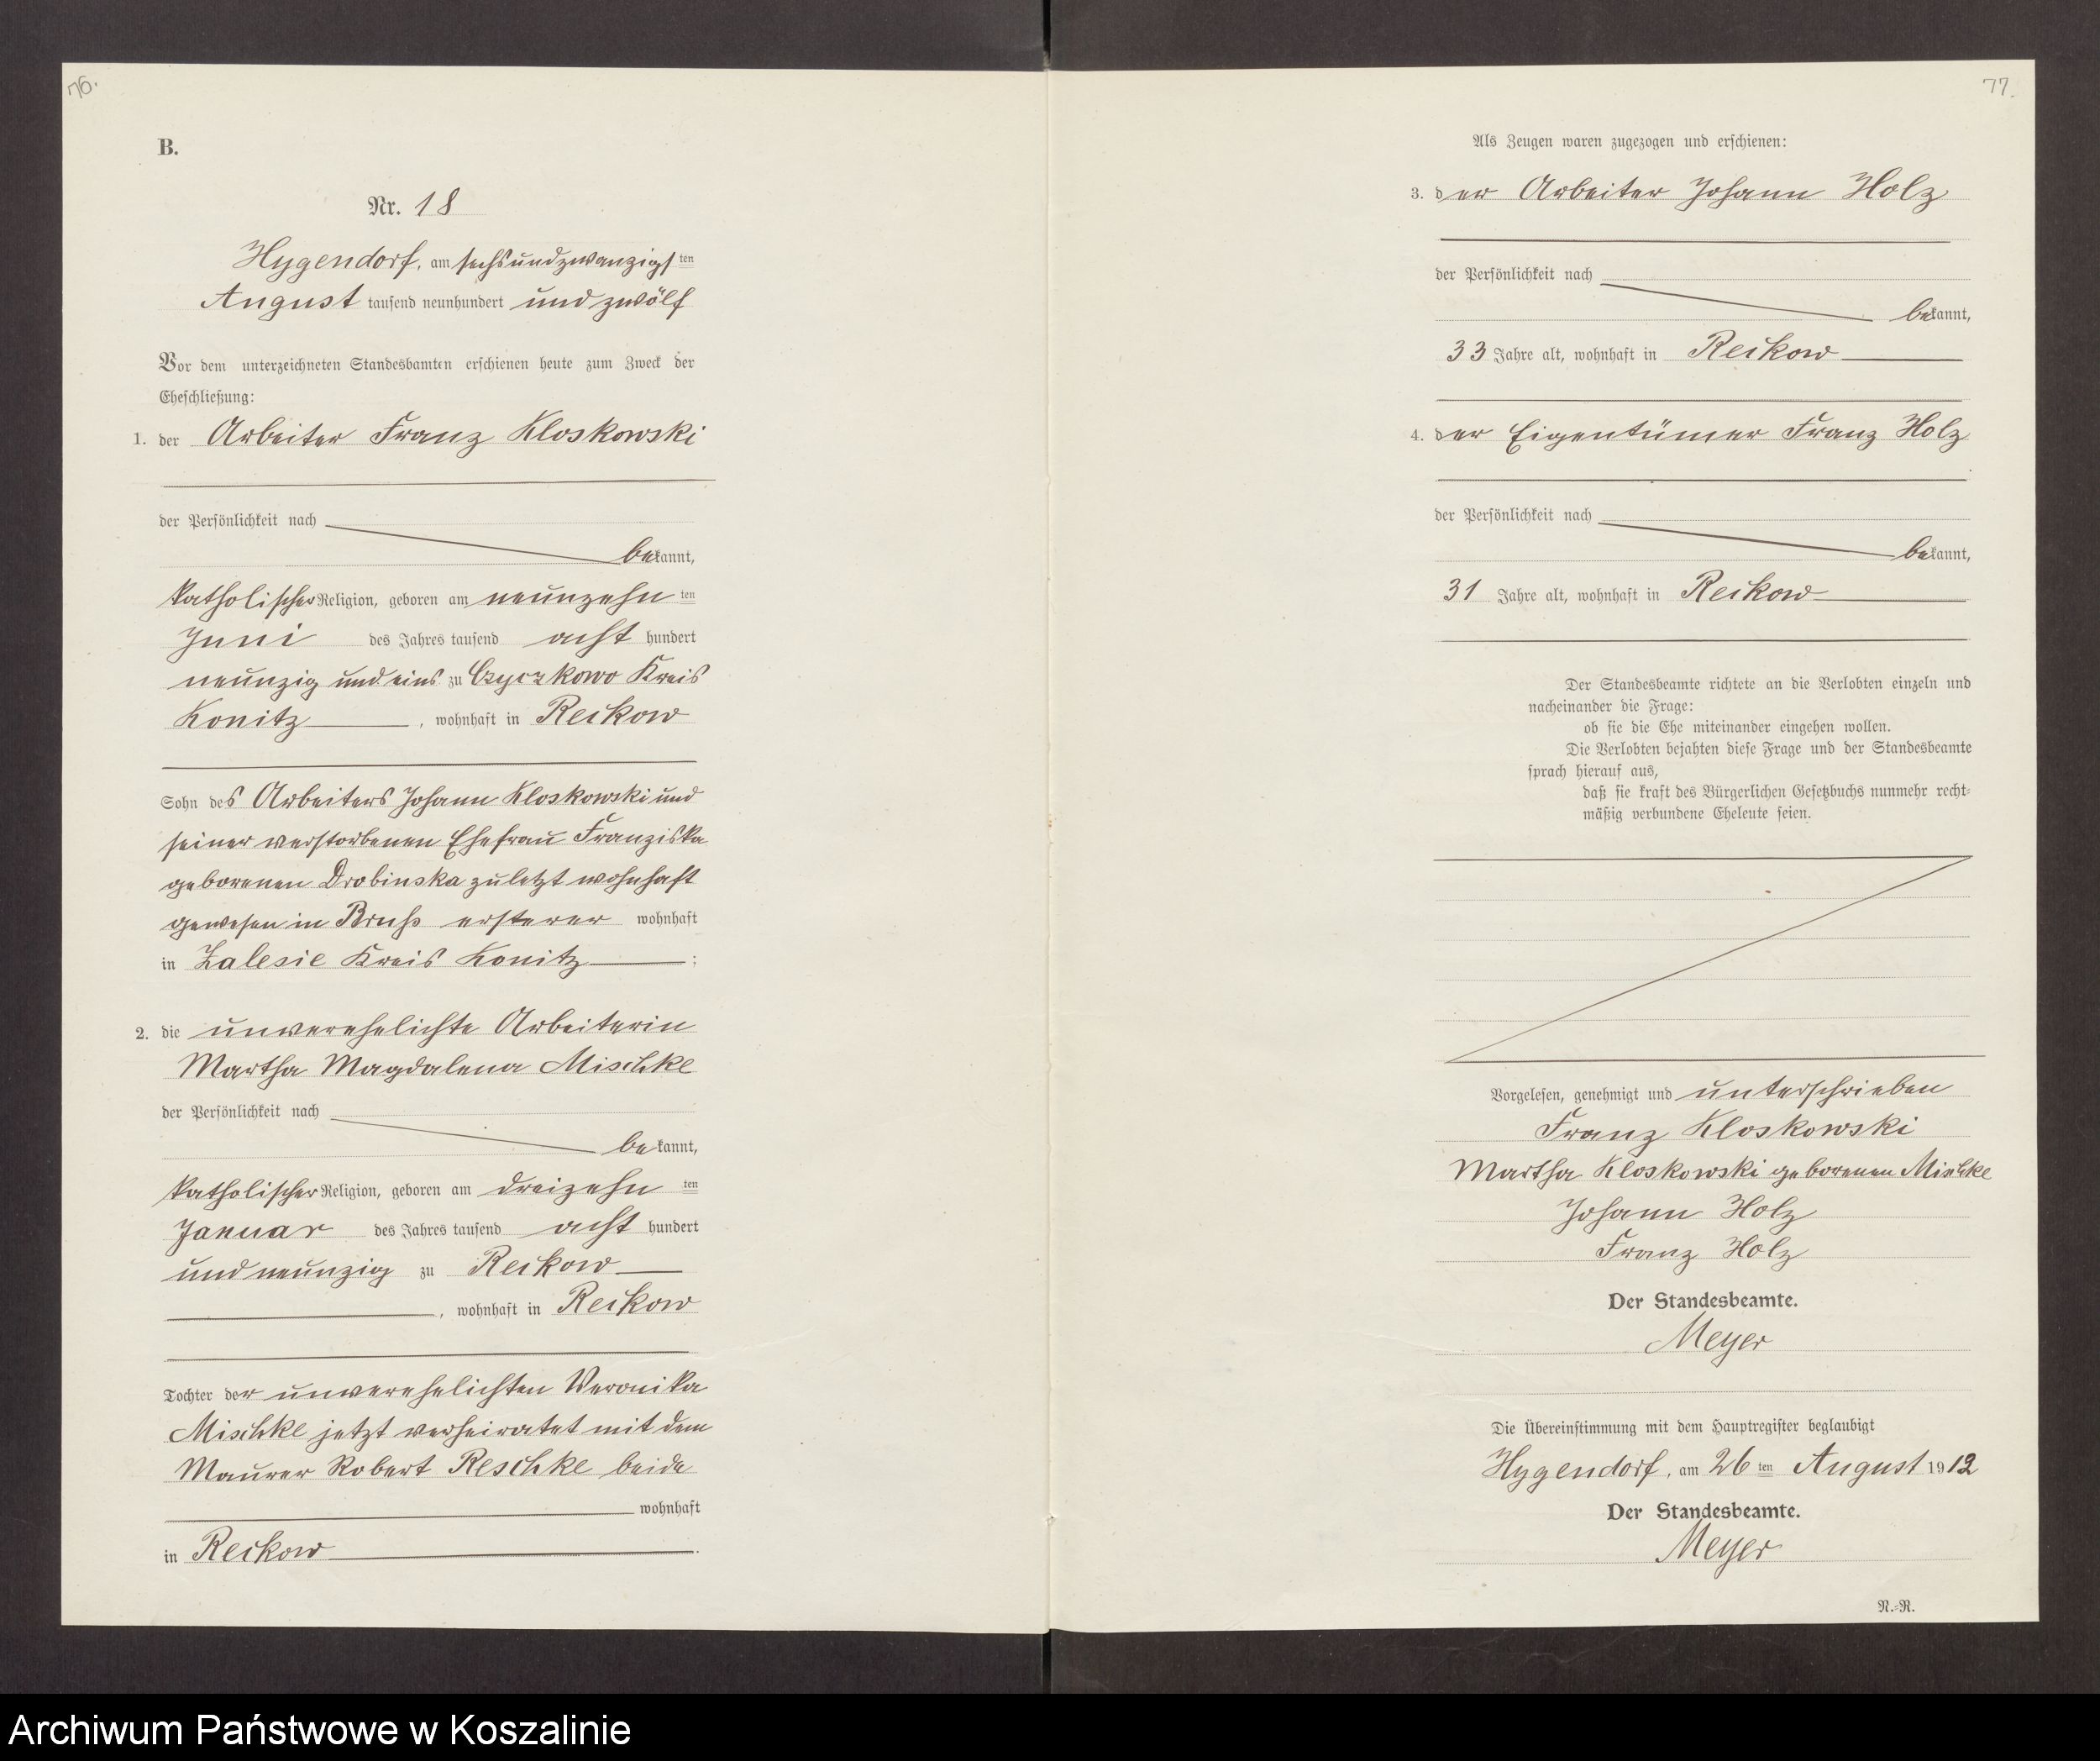 76.
B.
Nr. 18
Hygendorf, am sechsundzwanzigsten
August tausend neunhundert und zwölf
Vor dem unterzeichneten Standesbamten erschienen heute zum Zweck der
Eheschließung:
1. der Arbeiter Franz Kloskowski
der Persönlichkeit nach
bekannt,
katholischer Religion, geboren am neunzehnten
Juni des Jahres tausend acht hundert
neunzig und eins zu Czyczkowo Kreis
Konitz, wohnhaft in Reckow
Sohn des Arbeiters Johann Kloskowski und
seiner verstorbenen Ehefrau Franziska
geborenen Drobinska zuletzt wohnhaft
gewesen in Bruß ersterer wohnhaft
in Zalesie Kreis Konitz;
2. die unverehelichte Arbeiterin
Martha Magdalena Mischke
der Persönlichkeit nach
bekannt,
katholischer Religion, geboren am dreizehnten
Januar des Jahres tausend acht hundert
und neunzig zu Reckow
, wohnhaft in Reckow
Tochter der unverehelichten Veronika
Mischke jetzt verheiratet mit dem
Maurer Robert Reschke beide
wohnhaft
in Reckow.
77.
Als Zeugen waren zugezogen und erschienen:
3. der Arbeiter Johann Holz
der Persönlichkeit nach
bekannt,
33 Jahre alt, wohnhaft in Reckow
4. der Eigentümer Franz Holz
der Persönlichkeit nach
bekannt,
31 Jahre alt, wohnhaft in Reckow
Der Standesbeamte richtete an die Verlobten einzeln und
nacheinander die Frage:
ob sie die Ehe miteinander eingehen wollen.
Die Verlobten bejahten diese Frage und der Standesbeamte
sprach hierauf aus,
daß sie kraft des Bürgerlichen Gesetzbuchs nunmehr recht-
mäßig verbundene Eheleute seien.
Vorgelesen, genehmigt und unterschrieben
Franz Kloskowski
Martha Kloskowski geborenen Mischke
Johann Holz
Franz Holz
Der Standesbeamte.
Meyer
Die Übereinstimmung mit dem Hauptregister beglaubigt
Hygendorf, am 26ten August 1912
Der Standesbeamte.
Meyer
N.-R.
Archiwum Państwowe w Koszalinie